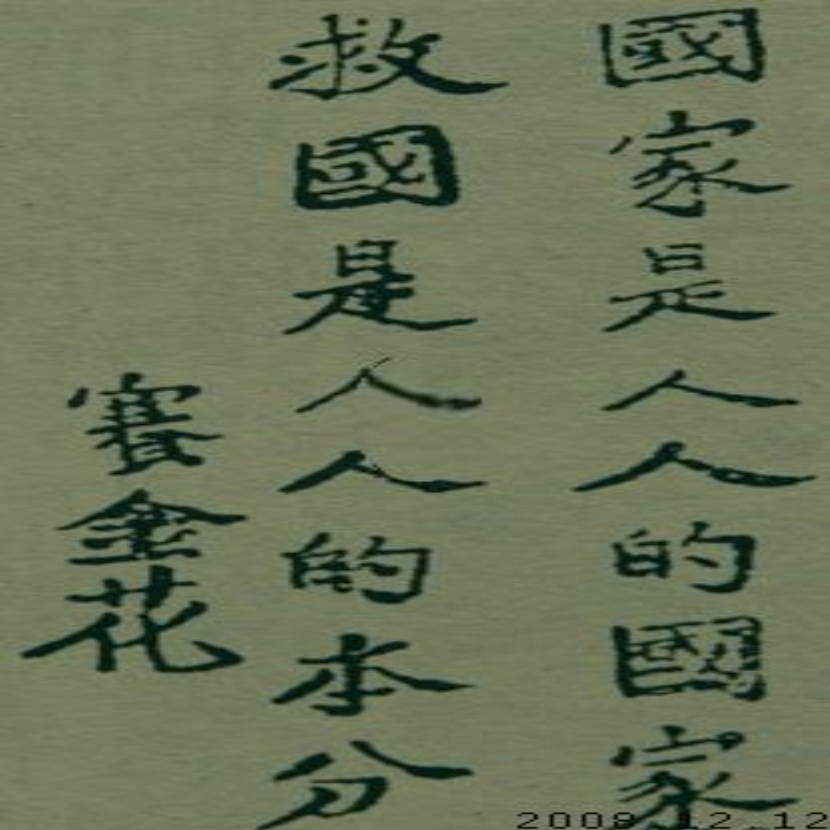 國家是人人的國家
救國是人人的本分
賽金花
2009.12.12